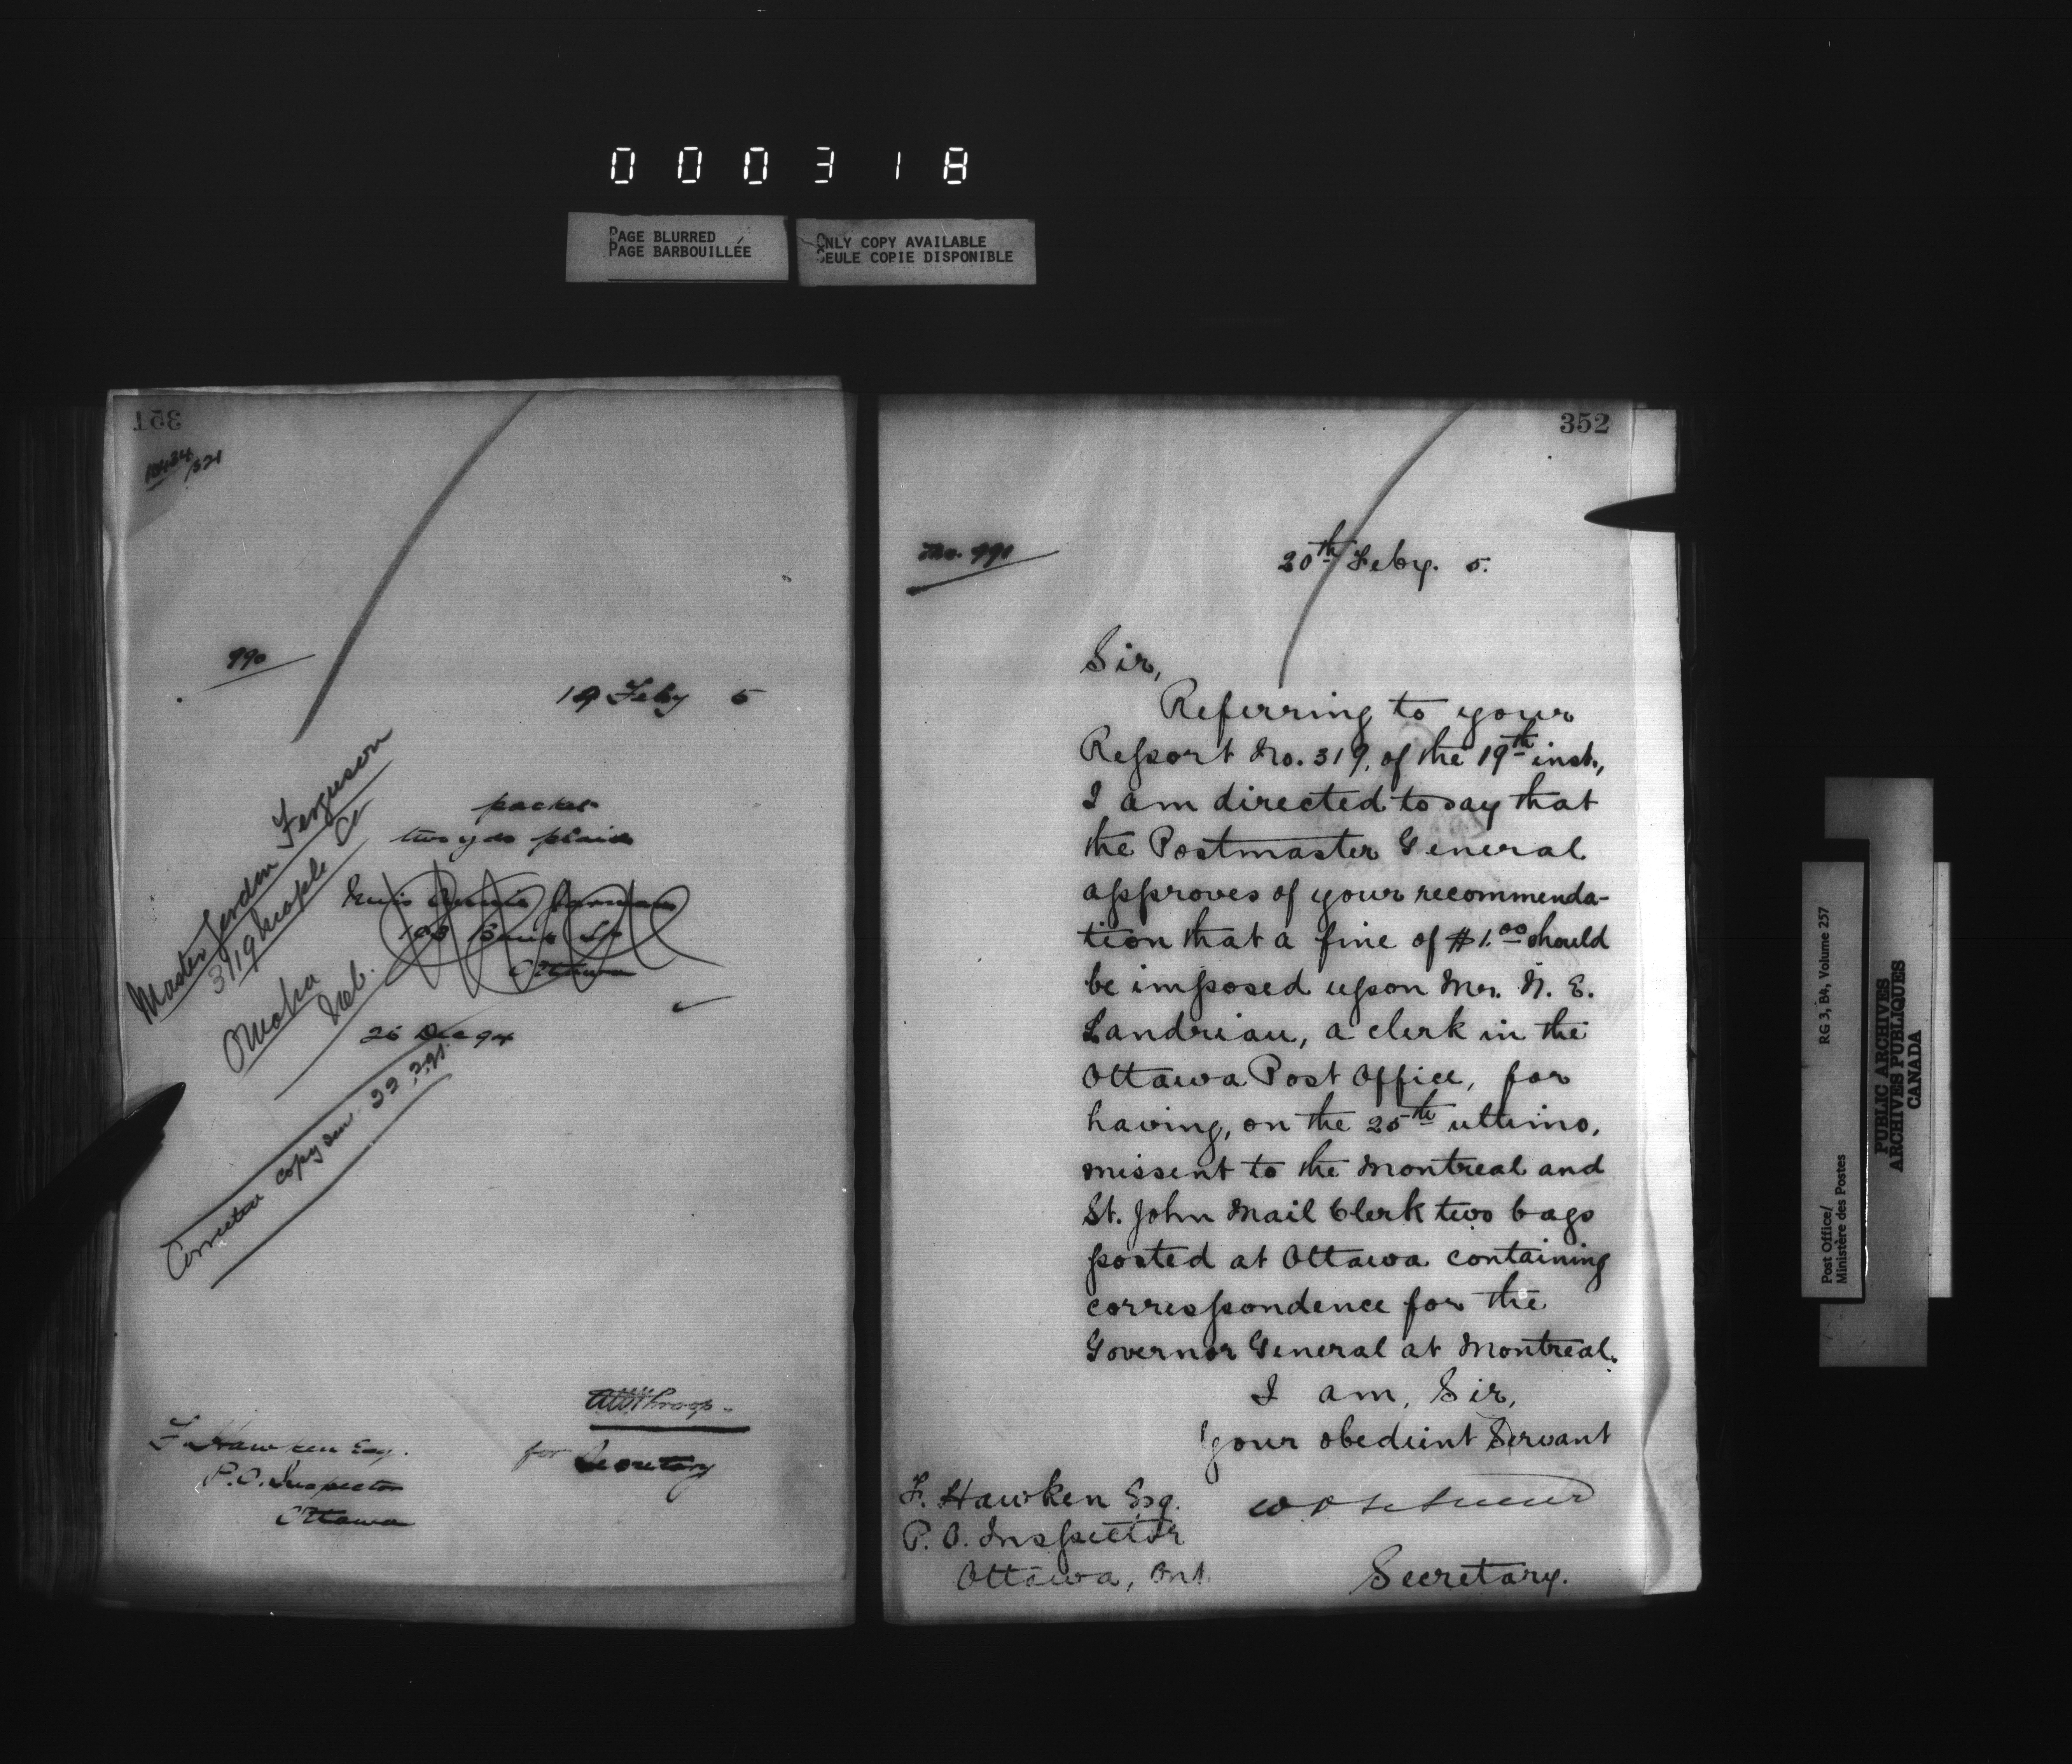 000318
PAGE BLURRED
PAGE BARBOUILLÉE
ONLY COPY AVAILABLE
SEULE COPIE DISPONIBLE
351
990
19 Feby 5
packet
two yds plaid
Ottawa
26 Dec 94
Master Jerdon Ferguson
3719 Maple
Omaha
Neb.
copy sent 22.2.95
F. Hawken Esq.
P.O. Inspector
Ottawa
for Secretary
352
No. 991
20th Feby. 5.
Sir,
Referring to your
Report No. 319, of the 19th inst.,
I am directed to say that
the Postmaster General
approves of your recommenda-
tion that a fine of $1.00 should
be imposed upon Mr. N. E.
Landriau, a clerk in the
Ottawa Post Office, for
having, on the 25th ultimo,
missent to the Montreal and
St. John Mail Clerk two bags
posted at Ottawa containing
correspondence for the
Governor General at Montreal.
I am, Sir,
Your obedient Servant
Secretary.
F. Hawken Esq.
P. O. Inspector
Ottawa, Ont.
Post Office/
Ministère des Postes
RG 3, B4, Volume 257
PUBLIC ARCHIVES
ARCHIVES PUBLIQUES
CANADA